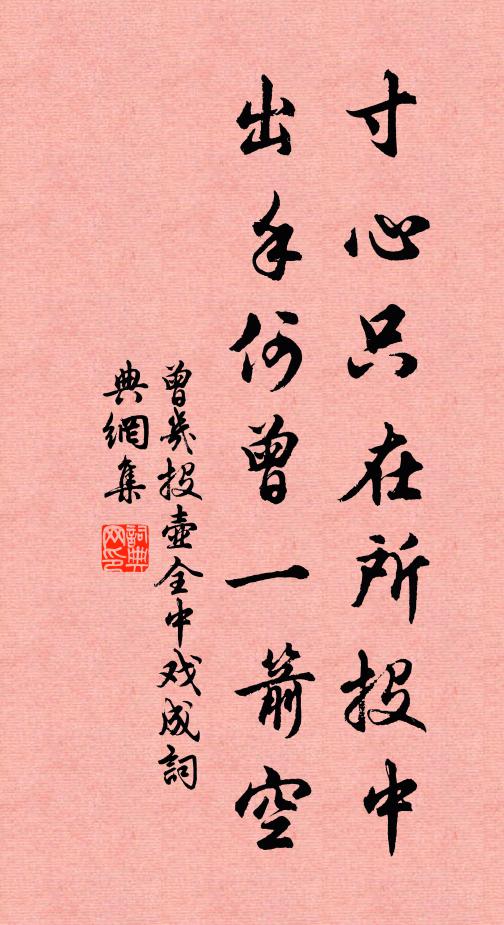 寸心只在所投中
出手何曾一箭空
曾幾投壺全中戏成詞
典網集
詞典
网印